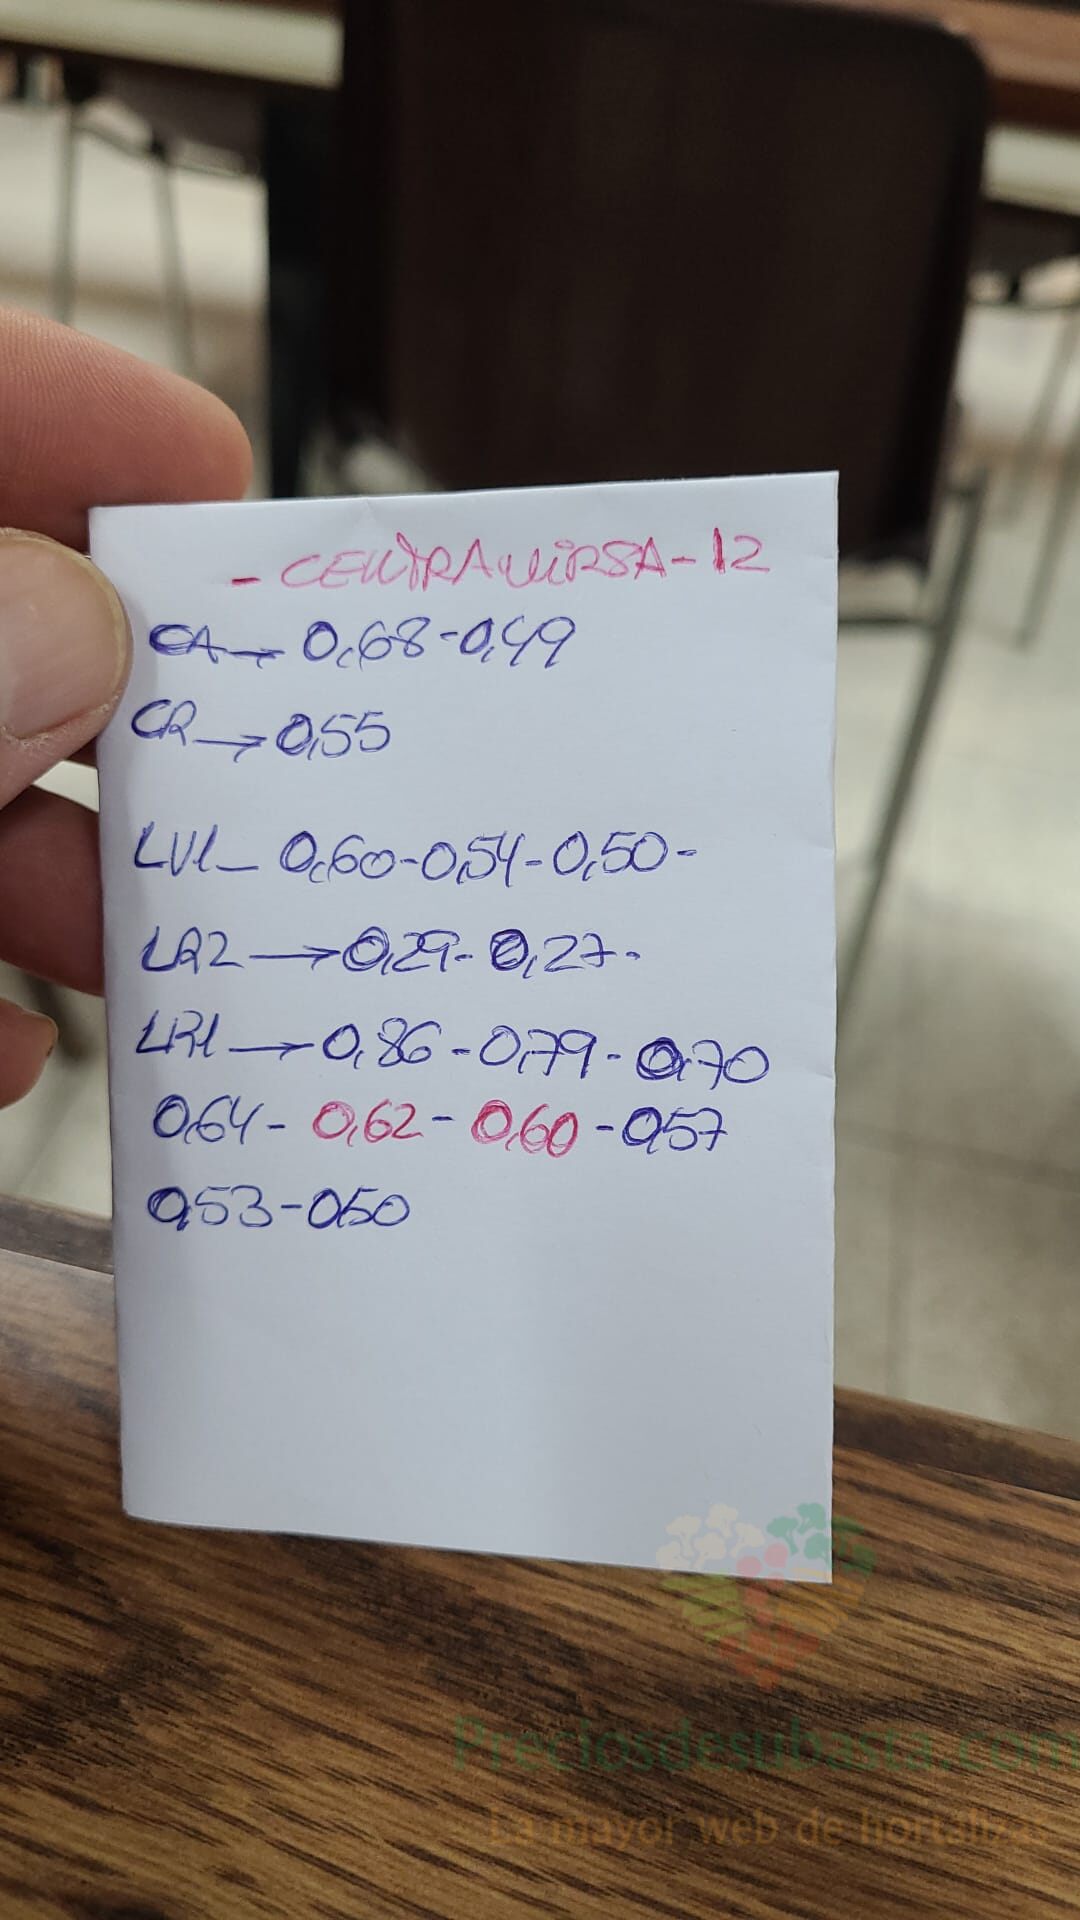 - CENTRAVIRSA - 12
CA → 0,68-0,49
CR → 0,55
LV1 - 0,60-0,54-0,50-
LR2 → 0,29-0,27-
LR1 → 0,86-0,79-0,70
0,64-0,62-0,60-0,57
0,53-0,50
Preciosdesubasta.com
La mayor web de hortalizas